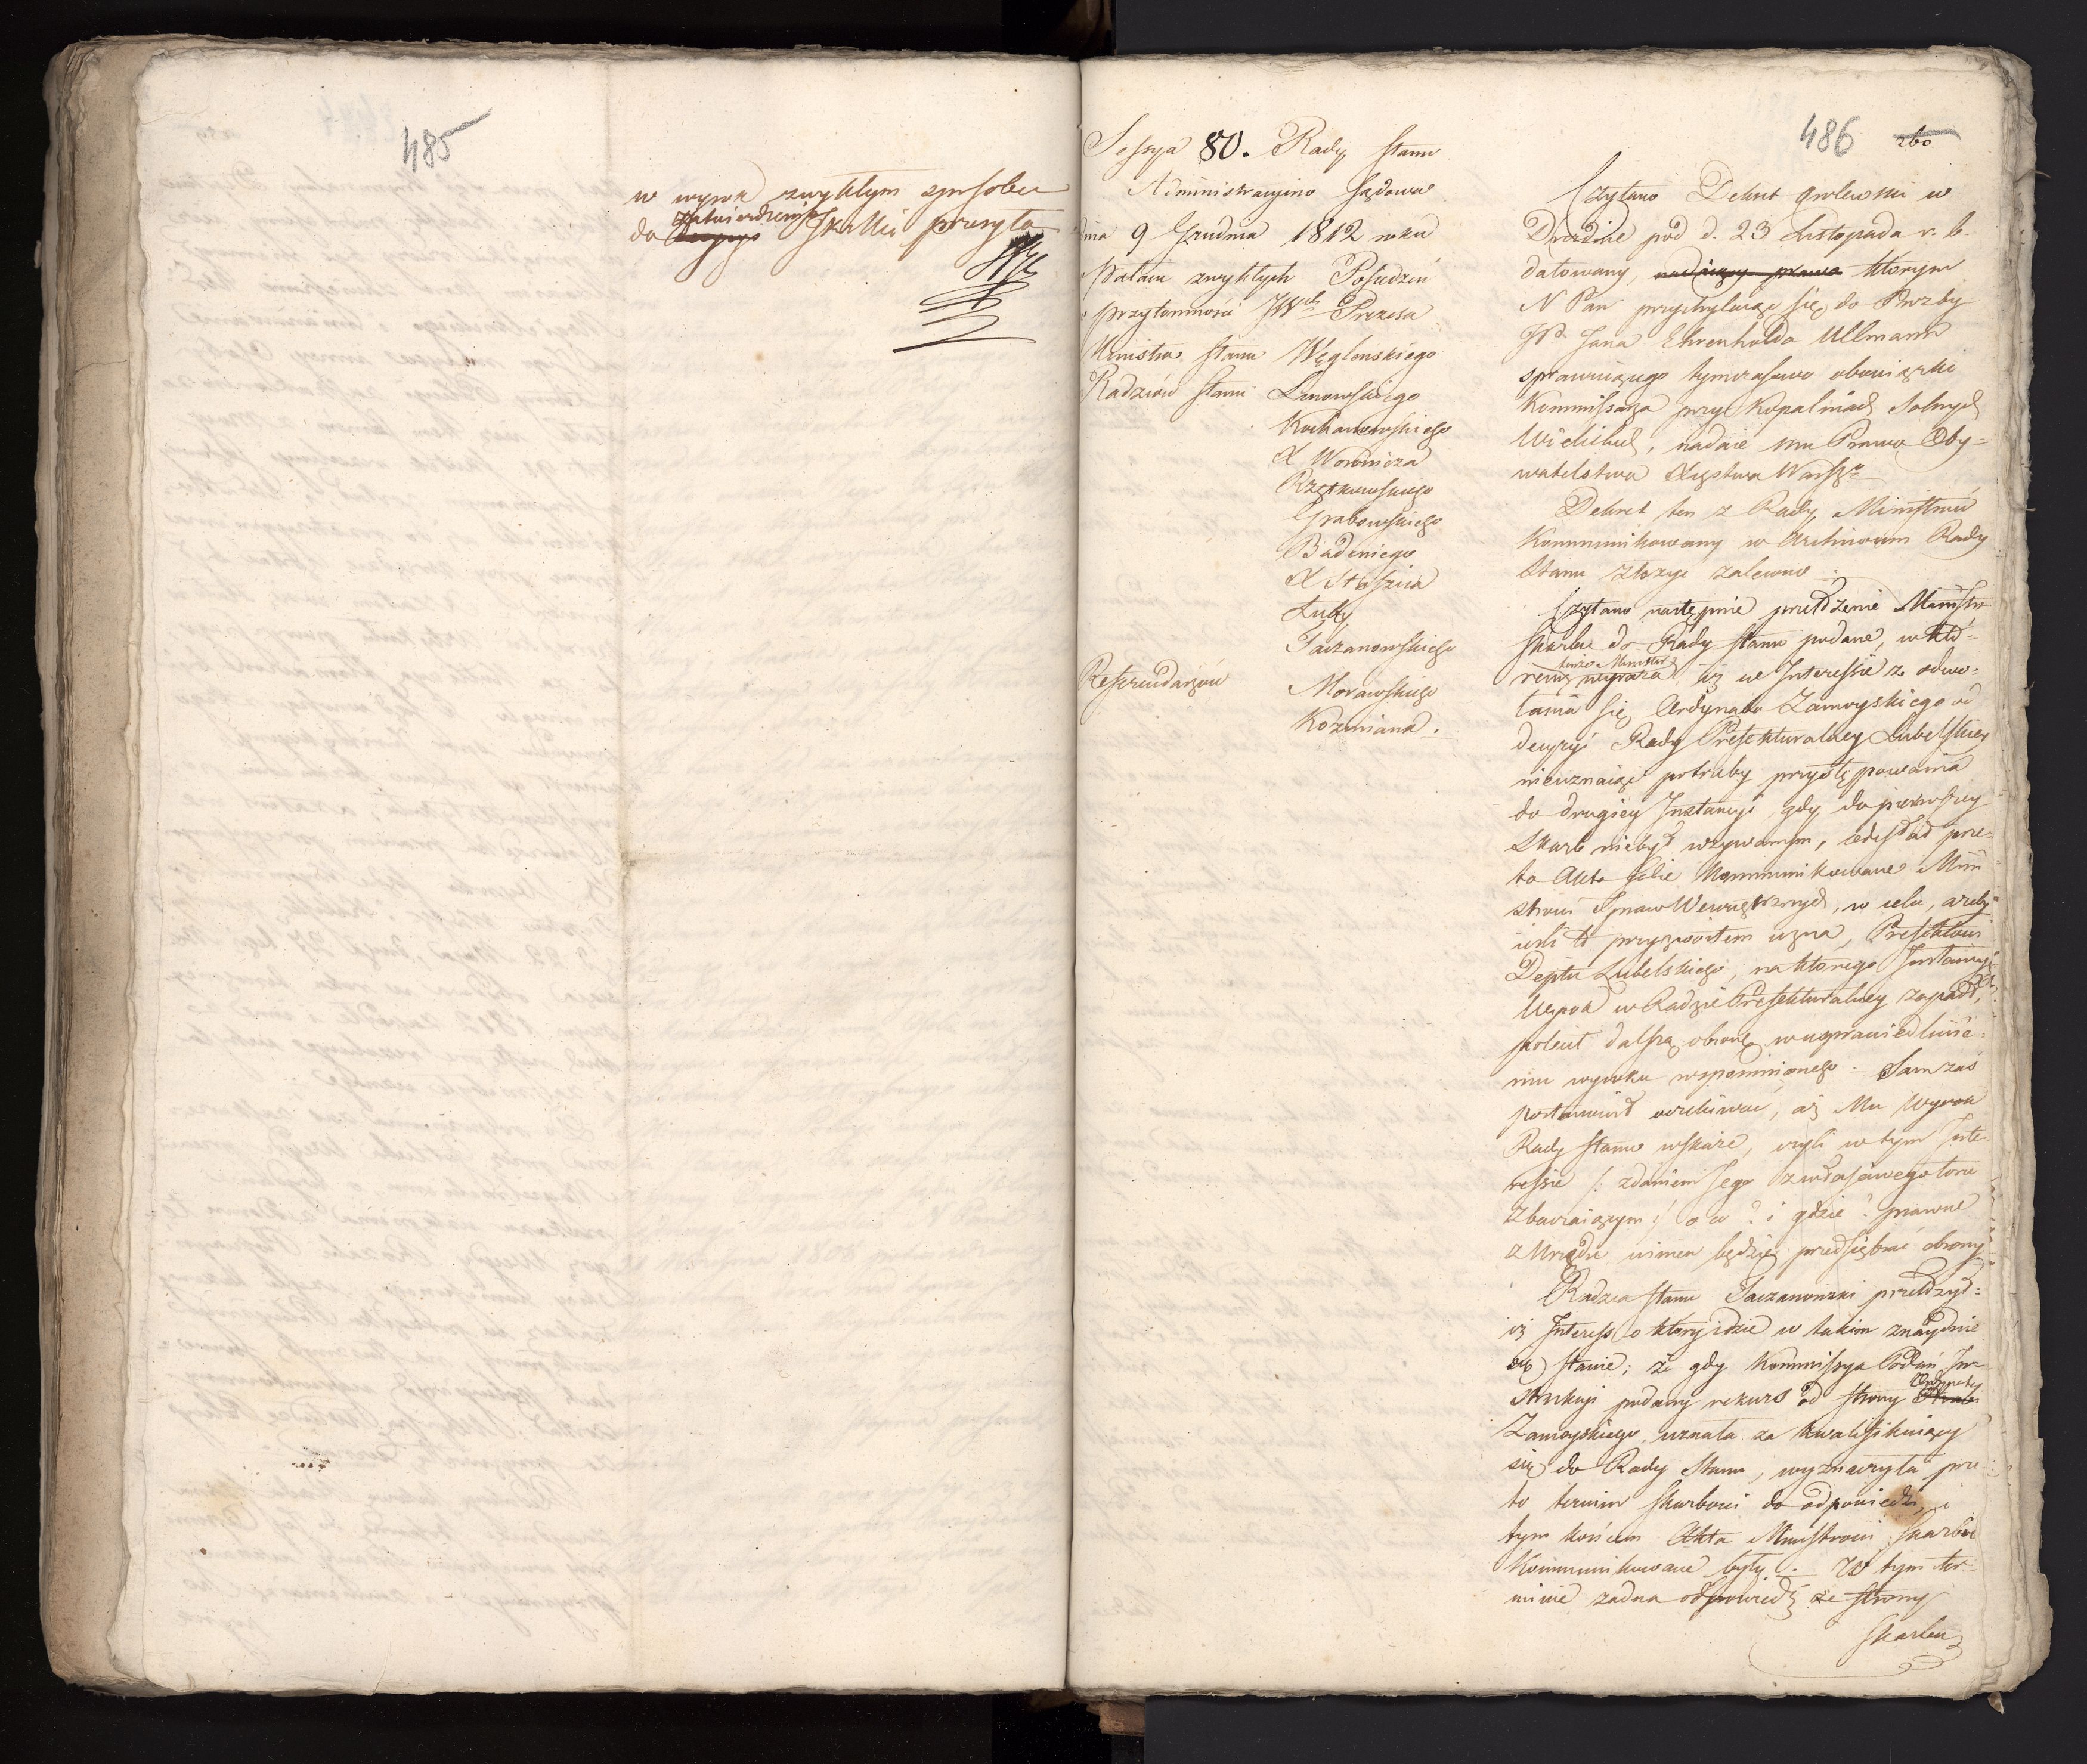 485
w wyrok zwykłym sposobem
zatwierdzenia
do skutku przesyła
486 260
Sessya 80. Rady Stanu
Administracyino Sądowa
dnia 9 Grudnia 1812 roku
Pałacu zwykłych Posiedzeń
przytomności JWch Prezesa
Ministra Stanu Węglenskiego
Radzców Stanu Linowskiego
Kochanowskiego
X Woronicza
Rzętkowskiego
Grabowskiego
Badeniego
X Staszica
Łuby
Taczanowskiego
Referendarzów Morawskiego
Kozmiana.
Czytano Dekret Królewski w
Dreznie pod d. 23 Listopada r. b.
datowany, nadaiący prawo którym
N Pan przychylaiąc się do Proźby
JPa Jana Ehrenholda Ullmann
sprawuiącego tymczasowo obowiązki
Kommissarza przy Kopalniach Solnych
Wielickich, nadaie mu Prawo Oby-
watelstwa Xięstwa Warszgo
Dekret ten z Rady Ministrów
Kommunikowany w Archiwum Rady
Stanu złożyć zalecono.
Czytano następnie przełożenie Ministra
Skarbu do Rady Stanu podane, w któ-
tenże Minister
rem wyraża iż w Interessie z odwo-
łania się Ordynata Zamoyskiego od
decyzyi Rady Prefekturalney Lubelskiey
nieuznaiąc potrzeby przystępowania
do drugiey Instancyi, gdy do pierwszey
Skarb niebył wzywanym, odesłał prze-
to Akta sobie Kommunikowane Mini
strowi Spraw Wewnętrznych, w celu, ażeby
ieśli to przyzwoitem uzna, Prefektowi
Deptu Lubelskiego, na którego Instancyi
Wyrok w Radzie Prefekturalney zapadł,
polecił dalszą obronę w usprawiedliwie-
niu wyroku wspomnionego. Sam zaś
postanowił oczekiwać, aż Mu Wyrok
Rady Stanu wskaże, czyli w tym Inte-
ressie /: zdaniem Jego z właściwego toru
zbaczaiącym :/ o co? i gdzie? prawne
z Urzędu winien będzie przedsięwziąć obrony
Radzca Stanu Taczanowski przełożył:
iż Interess o który idzie w takim znayduie
się stanie; że gdy Kommissya Podań i In-
strukcyi podany rekurs od strony
Ordynata
Zamoyskiego, uznała za kwalifikuiący
się do Rady Stanu, wyznaczyła prze
to termin Skarbowi do odpowiedzi, i
tym końcem Akta Ministrowi Skarbu
Kommunikowane były. W tym ter-
minie żadna odpowiedź ze strony
Skarbu